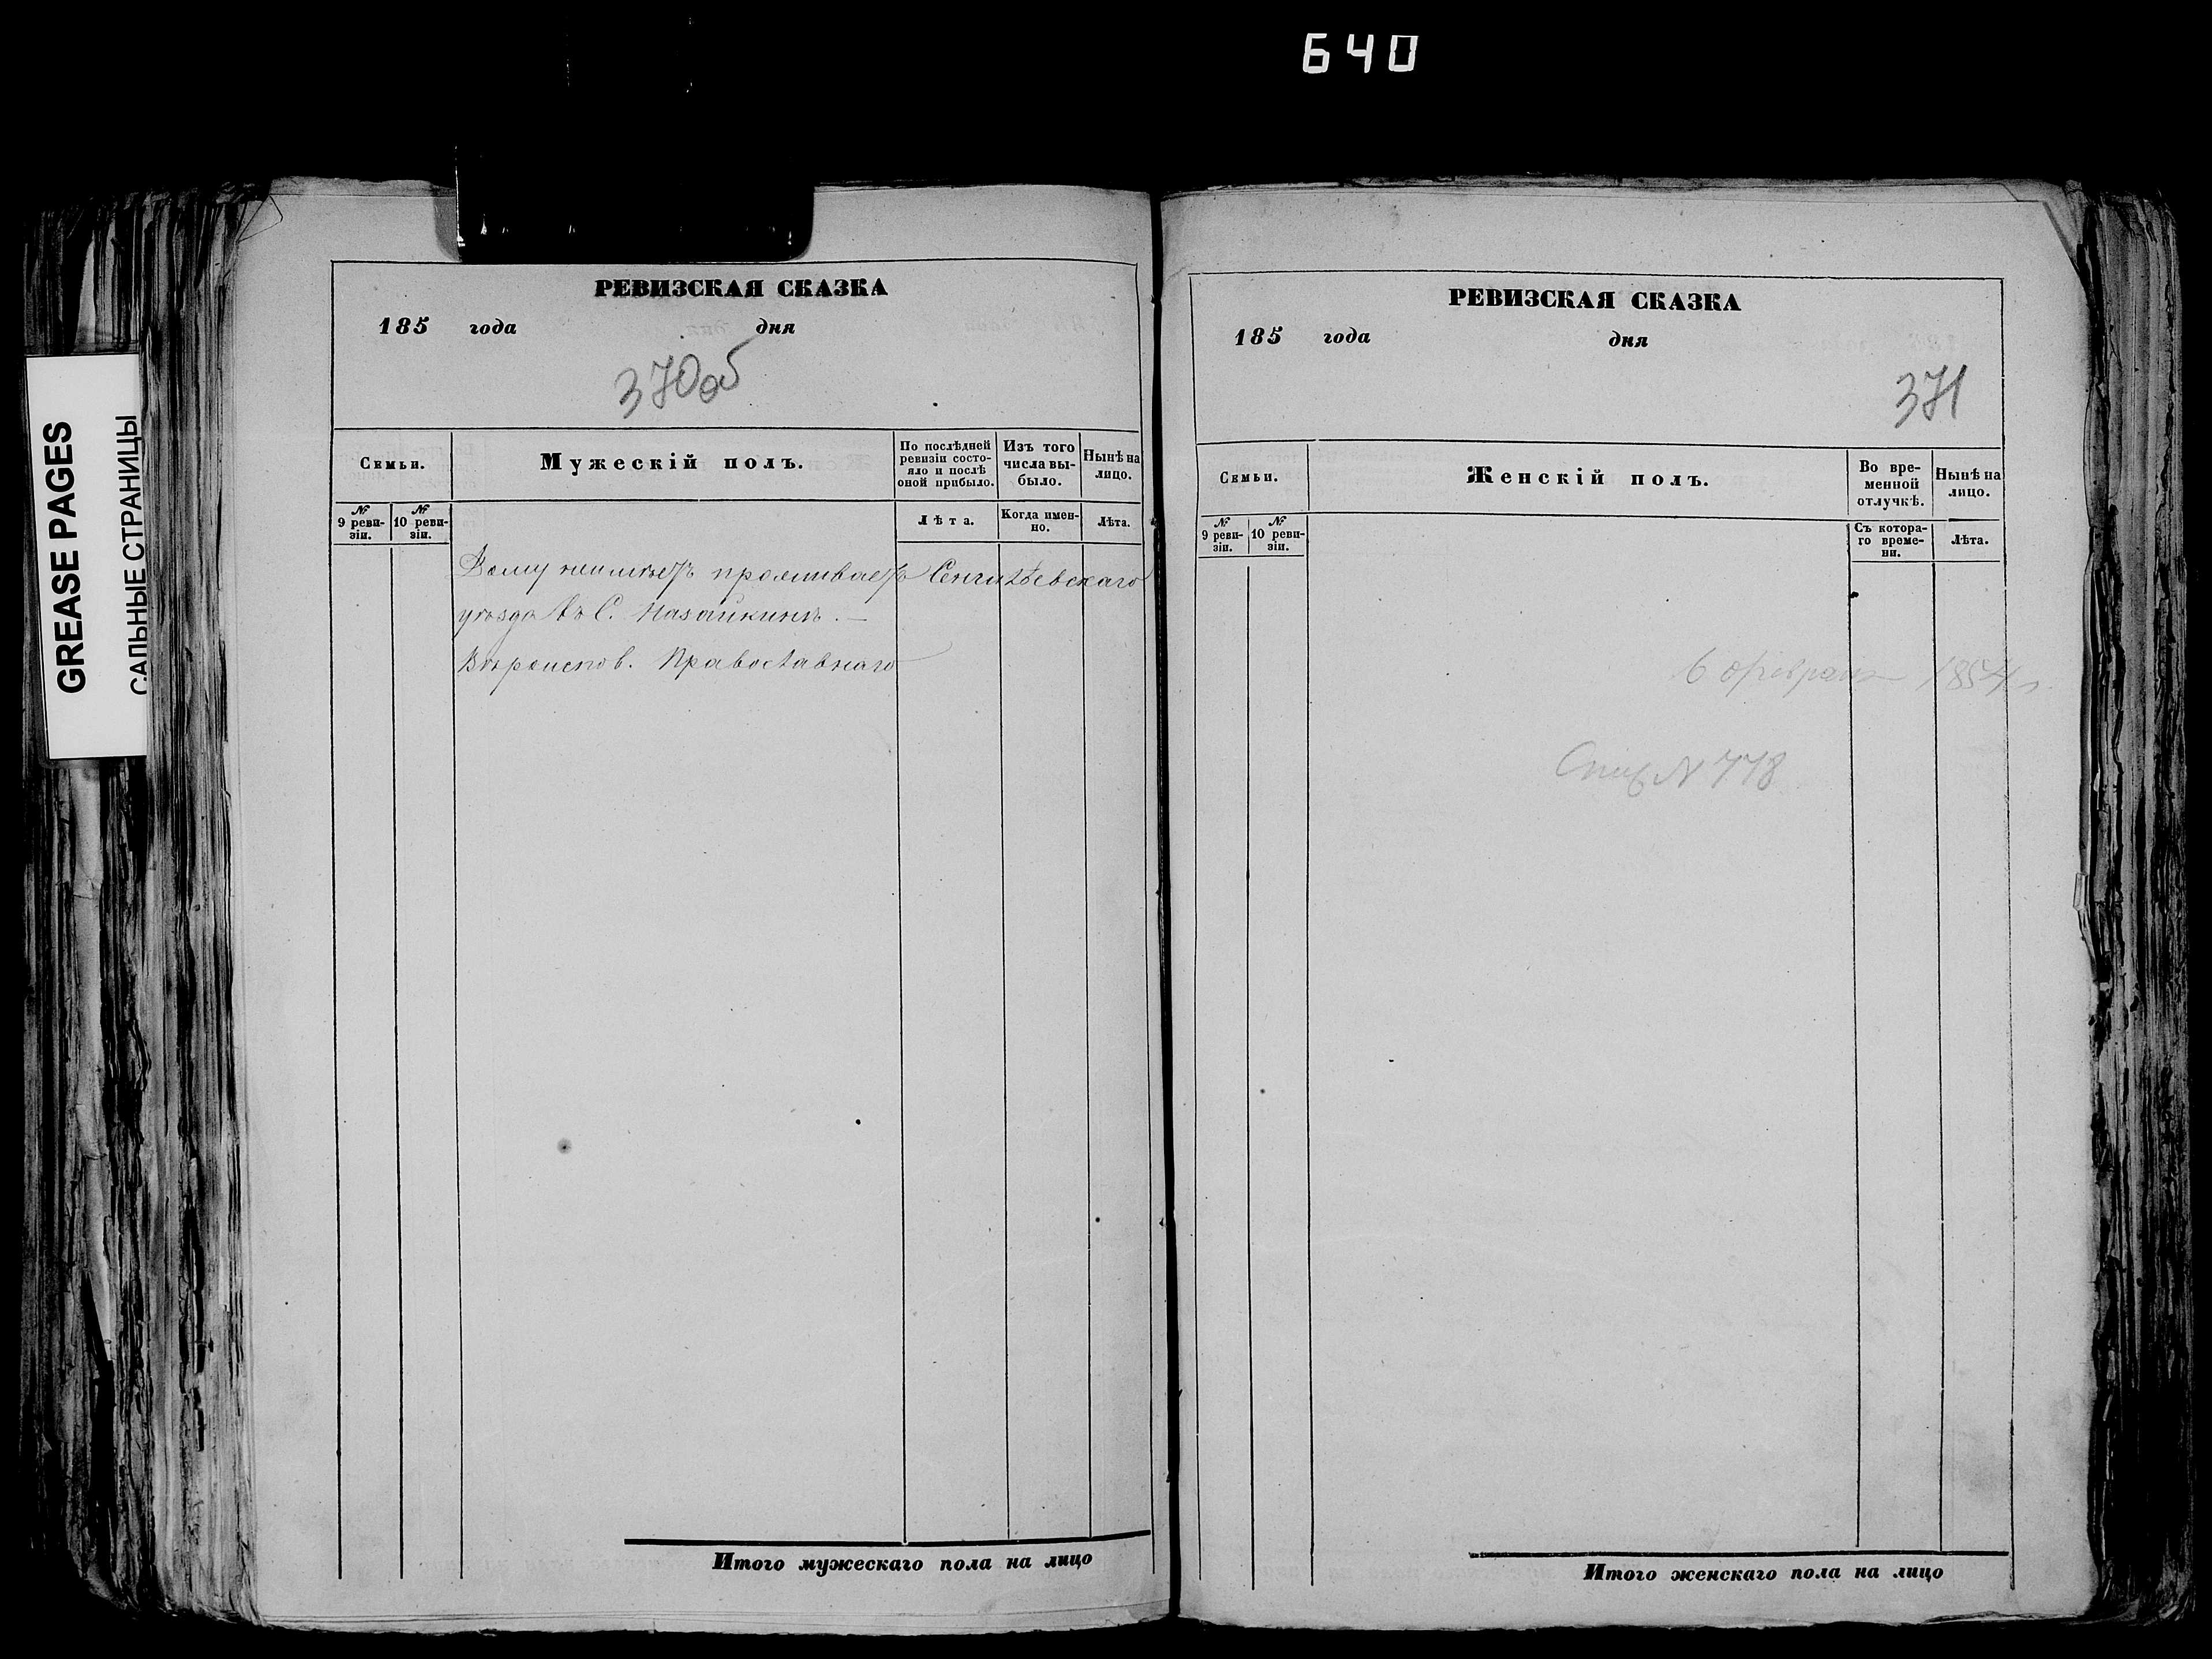 640
GREASE PAGES
САЛЬНЫЕ СТРАНИЦЫ
РЕВИЗСКАЯ СКАЗКА
185 года дня
370 об
Семьи.
Мужескій полъ.
По послѣдней ревизіи состо-
яло и послѣ оной прибыло.
Изъ того числа вы-
было.
Нынѣ на лицо.
№ 9 реви-
зіи.
№ 10 реви-
зіи.
Лѣта.
Когда имен-
но.
Лѣта.
Дому неимѣетъ проживаетъ Сенгилѣевскаго
уѣзда въ С. Назайкинѣ. —
Вѣроиспов. Православнаго
Итого мужескаго пола на лицо
РЕВИЗСКАЯ СКАЗКА
185 года дня
371
Семьи.
Женскій полъ.
Во вре-
менной
отлучкѣ.
Нынѣ на
лицо.
№ 9 реви-
зіи.
№ 10 реви-
зіи.
Съ котора-
го време-
ни.
Лѣта.
6 февраля 1854 г.
№ 778
Итого женскаго пола на лицо